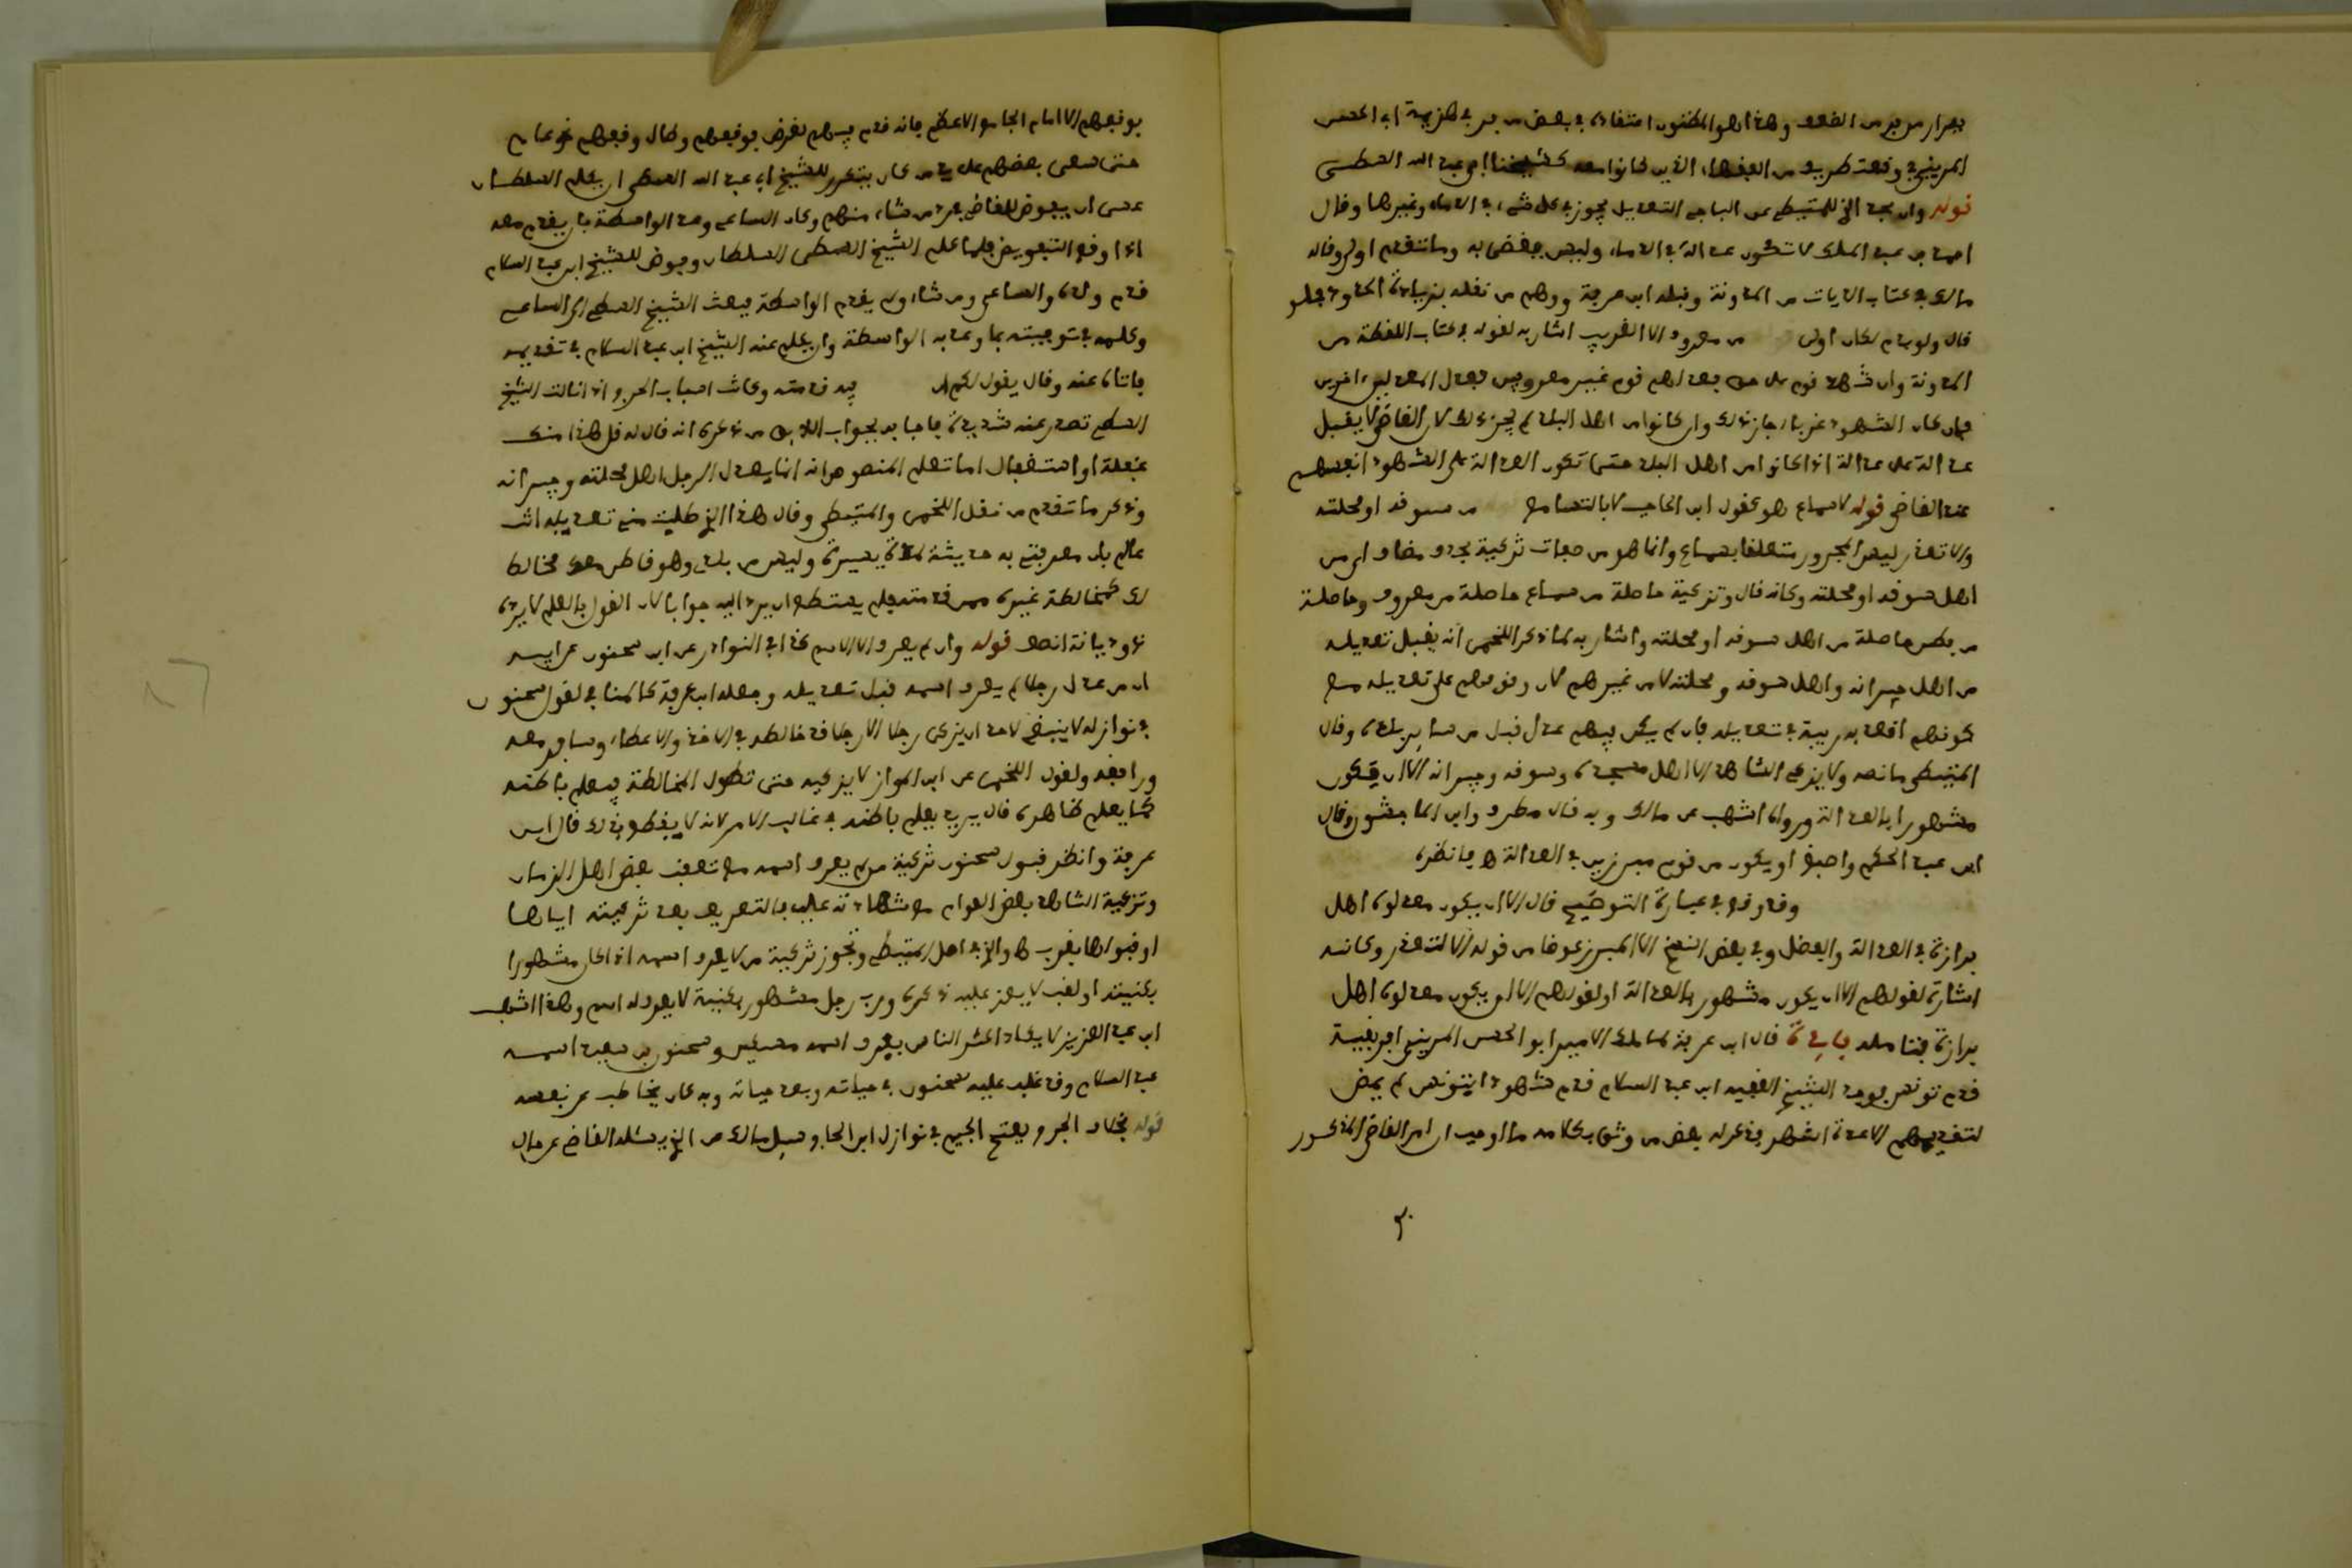 المريني وقعت طريف من الفقهاء الذين كانوا معه كشيخنا ابي عبد الله السطي
قوله وان بحد الخ للمتيطي عن الباجي التعديل يجوز في كل شيء في الدماء وغيرها وقال
احمد بن عبد الملك لا تكون عدالة في الدماء وليس يقضى به وما تقدم اولى وقاله
مالك في كتاب الديات من المدونة وقبله ابن عرفة ووهم من نقله بزيادة الحدود
قال ولو لكان اولى من معروف الا الغريب اشار به لقوله في كتاب اللقطة من
المدونة وان شهد قوم على حق فعدلهم قوم غير معروفين فعدل المعدلين اخرون
فان كان الشهود غرباء جاز ذلك وان كانوا من اهل البلد لم يجز ذلك لان القاضي لا يقبل
عدالة على عدالة اذا كانوا من اهل البلد حتى تكون العدالة على الشهود انفسهم
عند القاضي قوله لا سماع هو كقول ابن الحاجب لا بالتسامع من سوقه او محلته
والا تعذر ليس المجرور متعلقا بسماع وانما هو من صفات تزكية بحذف مضاف اي من
اهل سوقه او محلته وكانه قال وتزكية حاصلة من سماع حاصلة من معروف وحاصلة
من فطن حاصلة من اهل سوقه او محلته واشار به لما ذكر اللخمي انه يقبل تعديله
من اهل جيرانه واهل سوقه ومحلته لا من غيرهم لان وقوفهم على تعديله مع
كونهم اقعد به ريبة في تعديله فان لم يكن فيهم عدل قبل من سائر بلده وقال
المتيطي ما نصه ولا يزكي الشاهد الا اهل مسجده وسوقه وجيرانه الا ان يكون
مشهورا بالعدالة ورواه اشهب عن مالك وبه قال مطرف وابن الماجشون وقال
ابن عبد الحكم واصبغ او يكون من قوم مبرزين في العدالة ه فانظره
وقد وقع في عبارة التوضيح قال الا ان يكون معدلوه اهل
برازة في العدالة والفضل وفي بعض النسخ الا المبرز عوضا من قوله الا لتعذر وكانه
اشارة لقولهم الا ان يكون مشهور بالعدالة او لقولهم الا ان يكون معدلوه اهل
برازة فتامله فائدة قال ابن عرفة لما ملك الامير ابو الحسن المريني افريقية
قدم تونس فوجد الشيخ الفقيه ابن عبد السلام قدم شهودا بتونس لم يمض
لتقديمهم الا عدة اشهر فذكر له بعض من وثق بكلامه ما اوجب ان امر القاضي المذكور
٣٠
بوقفهم الا امام الجامع الاعظم فانه قدم فيهم لغرض فوقفهم وطال وقفهم نحو عام
حتى سعى بعضهم على يد من كان يتكرر للشيخ ابي عبد الله السطي ان يكلم السلطان
عسى ان يفوض للقاضي يرد من شاء منهم وكان الساعي وعد الواسطة بان يقدم معه
اذا وقع التفويض فلما كلم الشيخ السطي السلطان وفوض للشيخ ابن عبد السلام
قدم ولده والساعي ومن شاء ولم يقدم الواسطة فبعث الشيخ السطي الى الساعي
وكلمه في توجيبته بما وعد به الواسطة وان يكلم عنه الشيخ ابن عبد السلام في تقديمه
فاتاه عنه وقال يقول لكم
السطي تعذر عنه شديدة فاجابه بجواب من ذكره انه قال له قل هذا منك
غفلة او استغفال اما تعلم المنصوص انه انما يعدل الرجل اهل محلته وجيرانه
وذكر ما تقدم من نقل اللخمي والمتيطي وقال هذا الذي طلبت مني تعديله انت
عالم بان معرفتي به حديثة يسيرة وليس من بلدي وهو قاطن معك مخالط
لك كمخالطة غيره
ذو ديانة انتهى قوله وان لم يعرف الا الاسم كذا في النوادر عن ابن سحنون عن ابيه
ان من عدل رجلا لم يعرف اسمه قبل تعديله وجعله ابن عرفة كالمنافي لقول سحنون
في نوازله لا ينبغي لاحد ان يزكي رجلا الا رجلا قد خالطه في الاخذ والاعطاء وسافر معه
ورافقه ولقول اللخمي عن ابن المواز لا يزكيه حتى تطول المخالطة فيعلم باطنه
كما يعلم ظاهره قال يريد يعلم باطنه في غالب الامر لانه لا يقطع بذلك قال ابن
عرفة وانظر قبول سحنون تزكية من لم يعرف اسمه مع تعقب بعض اهل الزمان
وتزكية الشاهد بعض العوام مع شهادته عليه بالتعريف بعد تزكيته اياها
او قبولها بقرب ه والذي لاصل المتيطي وتجوز تزكية من لا يعرف اسمه اذا كان مشهورا
بكنيته او لقب لا يعز عليه ذكره ورب رجل مشهور بكنية لا يعرف له اسم وهذا اشهب
ابن عبد العزيز لا يكاد اكثر الناس يعرف اسمه مسكين وسحنون بن سعيد اسمه
عبد السلام وقد غلب عليه سحنون في حياته وبعد حياته وبه كان يخاطب عن نفسه
قوله بخلاف الجرح بفتح الجيم في نوازل ابن الحاج وسئل مالك عن الذي يسئله القاضي عن حال